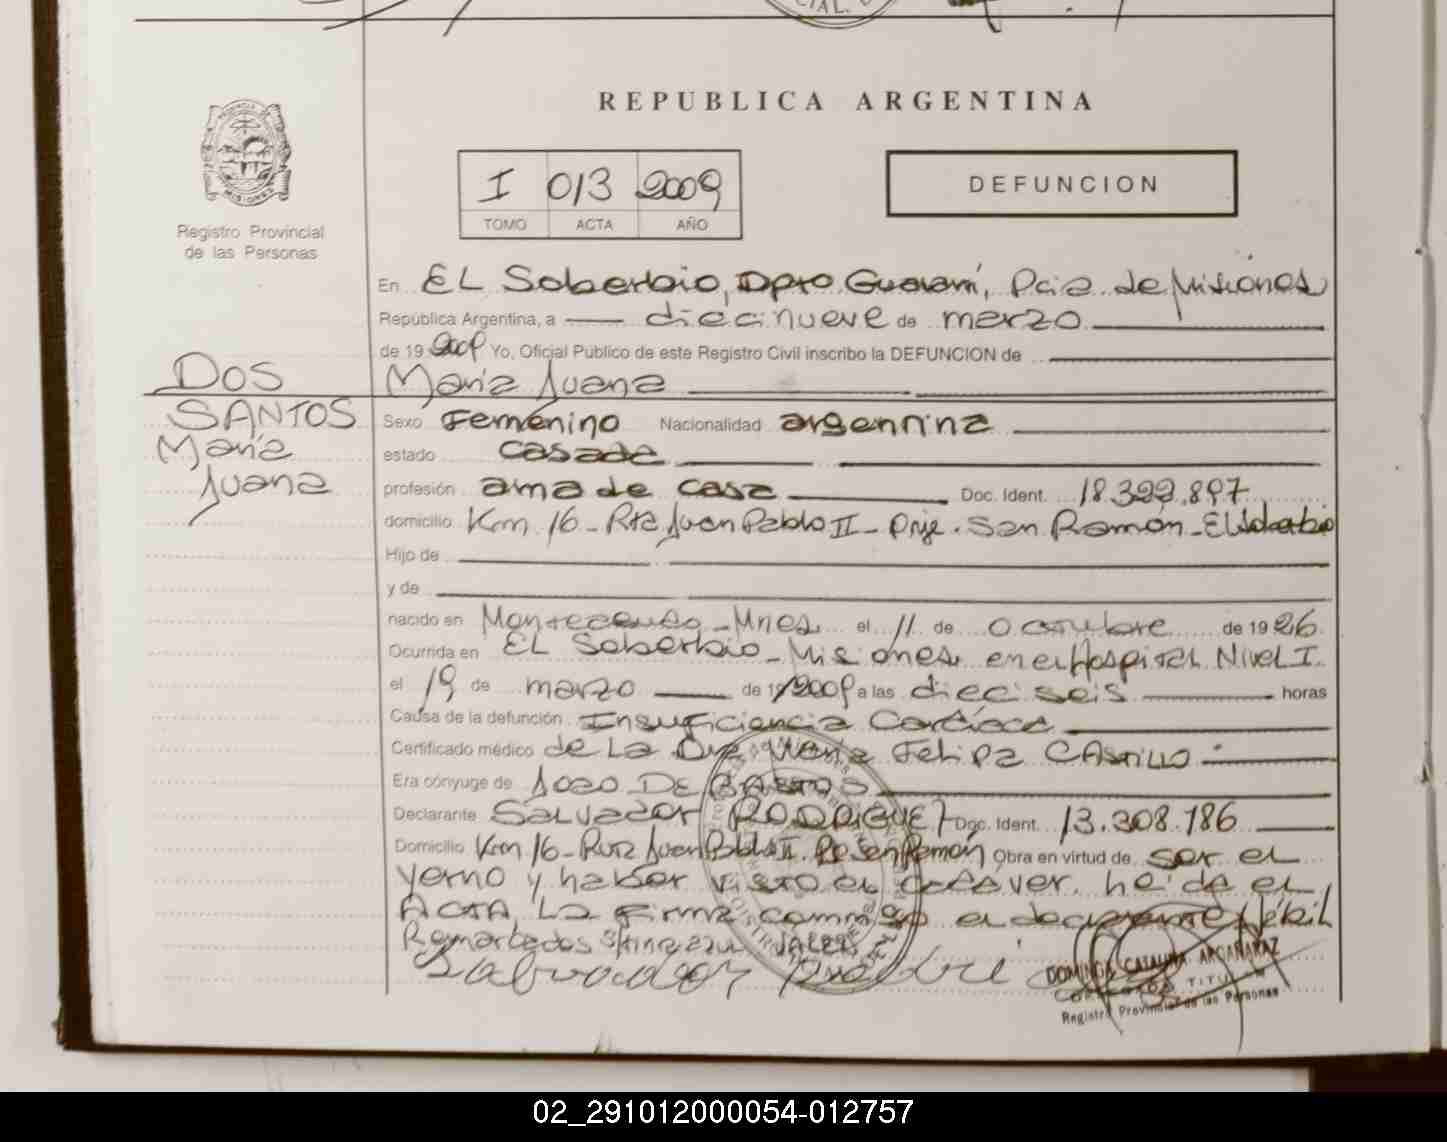 REPUBLICA ARGENTINA
I 013 2009
TOMO ACTA AÑO
DEFUNCION
Registro Provincial
de las Personas
DOS
SANTOS
María
Juana
En EL Soberbio, Dpto Guaraní, Pcia de Misiones
República Argentina, a diecinueve de marzo
de 19 2009 Yo, Oficial Público de este Registro Civil inscribo la DEFUNCION de
María Juana
Sexo Femenino Nacionalidad argentina
estado casada
profesión ama de casa Doc. Ident. 18.322.897
domicilio Km 16 - Rta Juan Pablo II - Pje. San Ramón - El Soberbio
Hijo de
y de
nacido en - Mnes el 11 de octubre de 1926
Ocurrida en EL Soberbio - Misiones en el Hospital Nivel I.
el 19 de marzo de 19 2009 a las dieciseis horas
Causa de la defunción Insuficiencia Cardíaca
Certificado médico de La Dra María Felipa CAStiLLO
Era cónyuge de Joao DE BASTOS
Declarante Salvador RODRIGUEZ Doc. Ident. 13.308.186
Domicilio Km 16 - Ruta Juan Pablo II. Pje San Ramón Obra en virtud de ser el
yerno y haber visto el cadáver. heida el
ACTA, La firma conmigo el declarante
VALEN
Salvador
DOMINGA CATALINA ARGAÑARAZ
TITULAR
Registro Provincial de las Personas
02_291012000054-012757